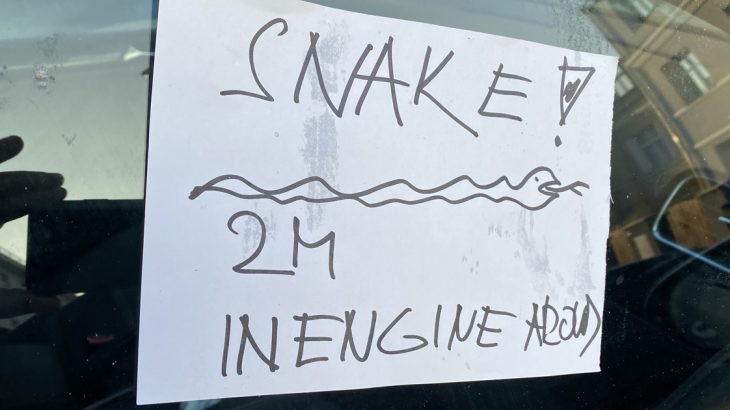 SNAKE!
2M
IN ENGINE AROUD